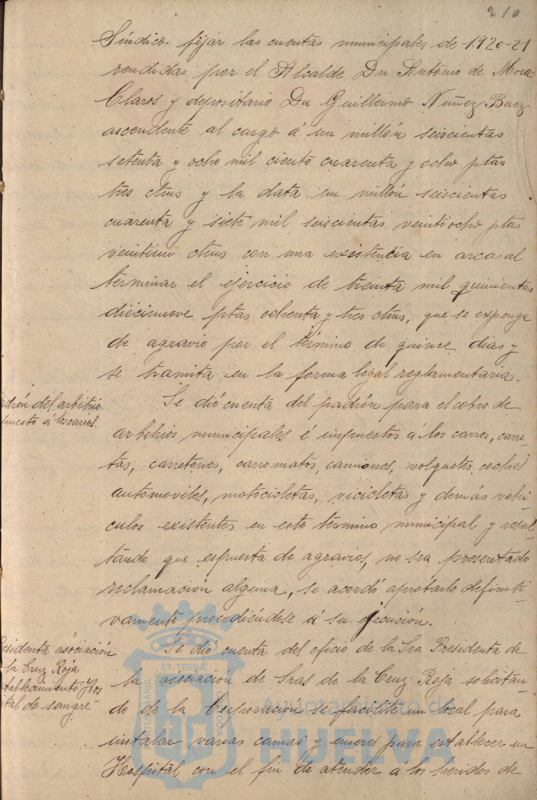 210
Síndico. fijar las cuentas municipales de 1920-21
rendidas por el Alcalde Dn Antonio de Mora
Claros y depositario Dn Guillermo Núñez Baez
ascendente al cargo á un millón seiscientas
setenta y ocho mil ciento cuarenta y ocho ptas
tres ctms y la data un millón seiscientas
cuarenta y siete mil seiscientas veintiocho ptas
veintiun ctms con una existencia en arca al
terminar el ejercicio de treinta mil quinientas
diecinueve ptas ochenta y tres ctms, que se exponga
de agravio por el término de quince días y
se tramita en la forma legal reglamentaria.
Padrón del arbitrio
impuesto á los carros.
Se dió cuenta del padrón para el cobro de
arbitrios municipales é impuestos á los carros, carre-
tas, carretones, carromatos, camiones, volquetes, coches
automoviles, motocicletas, vicicletas y demás vehi-
culos existentes en este término municipal y resul-
tando que espuesta de agravios, no sea presentado
reclamación alguna, se acordó aprobarlo definiti-
vamente procediéndose á su ejecución.
Presidenta asociación
la Cruz Roja
establecimiento Hos-
pital de sangre
Se dió cuenta del oficio de la Sra Presidenta de
la asociación de Sras de la Cruz Roja solicitan-
do de la Corporación se facilite un local para
instalar varias camas y enseres para establecer un
Hospital con el fin de atender a los heridos de
ET TERRAE
Ayuntamiento de
HUELVA